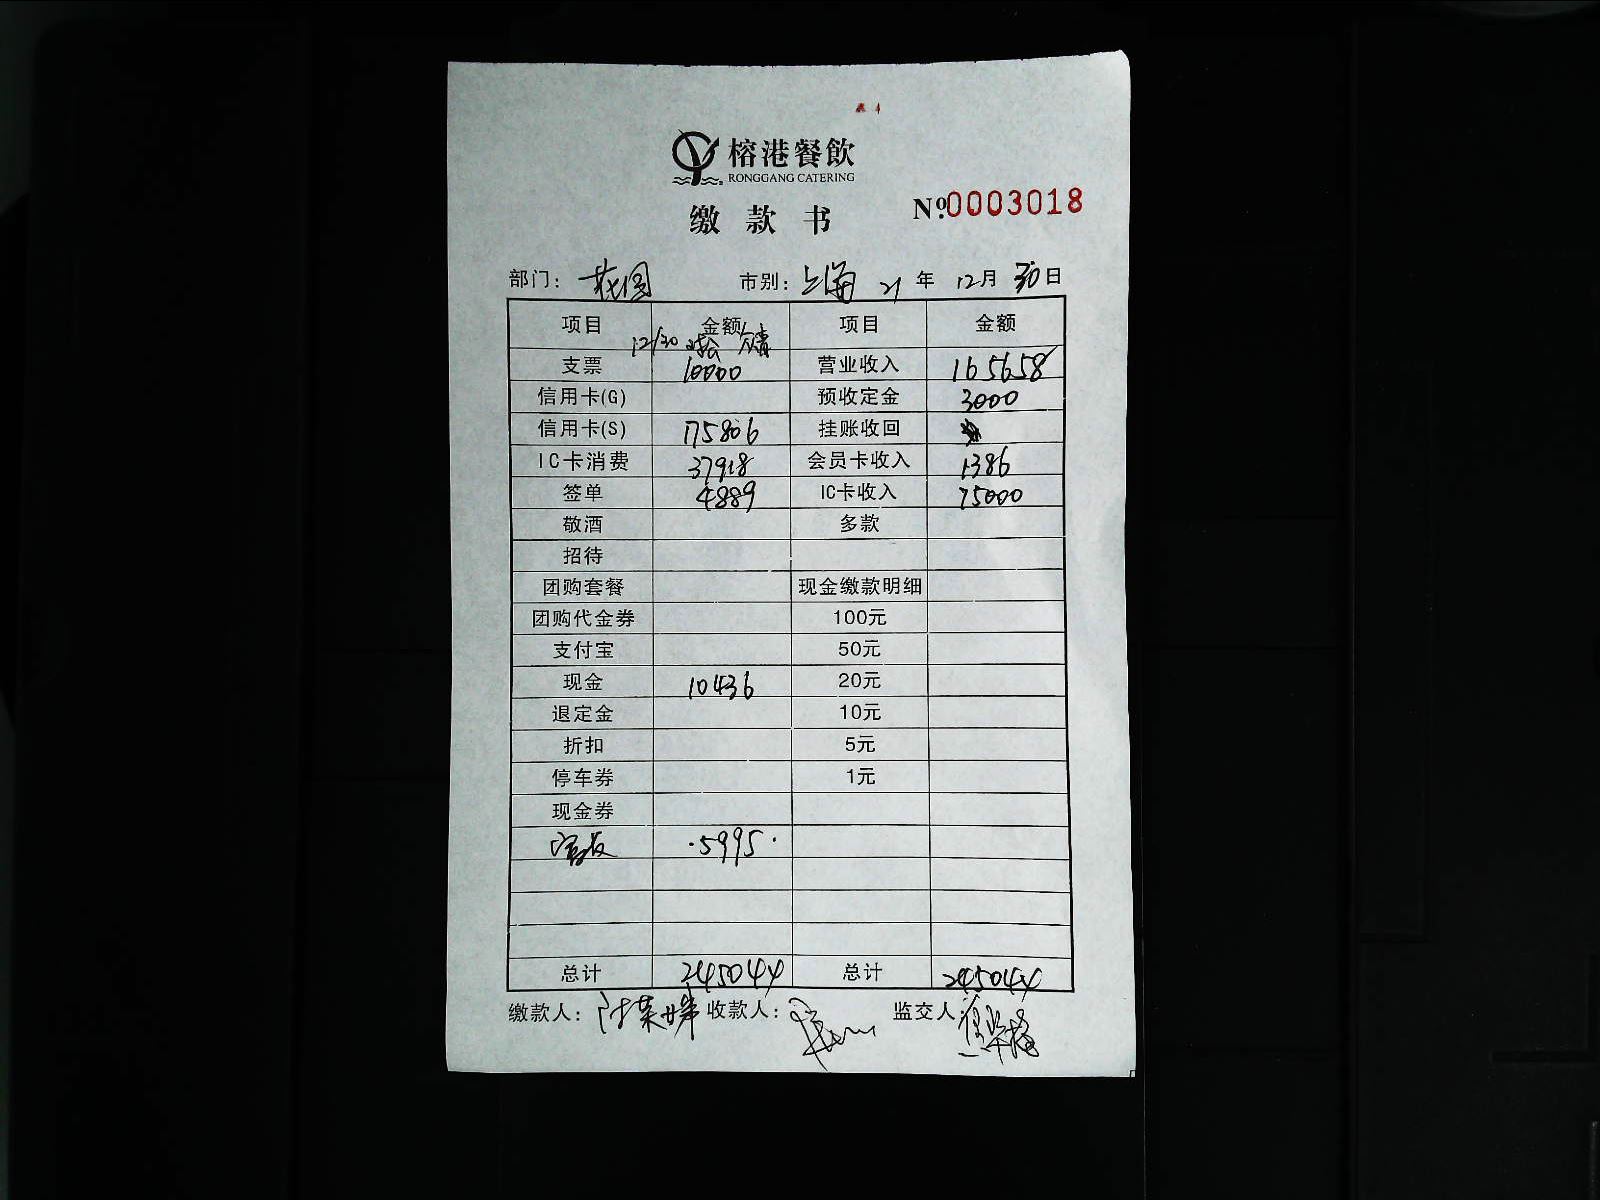 榕港餐飲
RONGGANG CATERING
缴款书 Nº.0003018
部门: 花园 市别: 上海 21 年 12月 30日
项目 金额 项目 金额
12/30
支票 10000 营业收入 165658
信用卡(G) 预收定金 3000
信用卡(S) 175806 挂账收回
IC卡消费 37918 会员卡收入 1386
签单 4889 IC卡收入 75000
敬酒 多款
招待
团购套餐 现金缴款明细
团购代金券 100元
支付宝 50元
现金 10436 20元
退定金 10元
折扣 5元
停车券 1元
现金券
·5995·
总计 245044 总计 245044
缴款人: 收款人: 监交人: